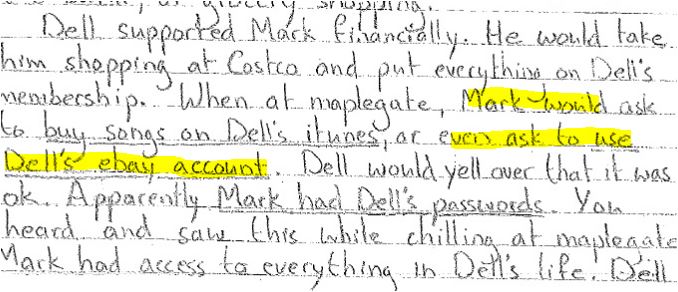 grocery shopping.
Dell supported Mark financially. He would take
him shopping at Costco and put everything on Dell's
membership. When at maplegate, Mark would ask
to buy songs on Dell's itunes, or even ask to use
Dell's ebay account. Dell would yell over that it was
ok. Apparently Mark had Dell's passwords. You
heard and saw this while chilling at maplegate
Mark had access to everything in Dell's life. Dell